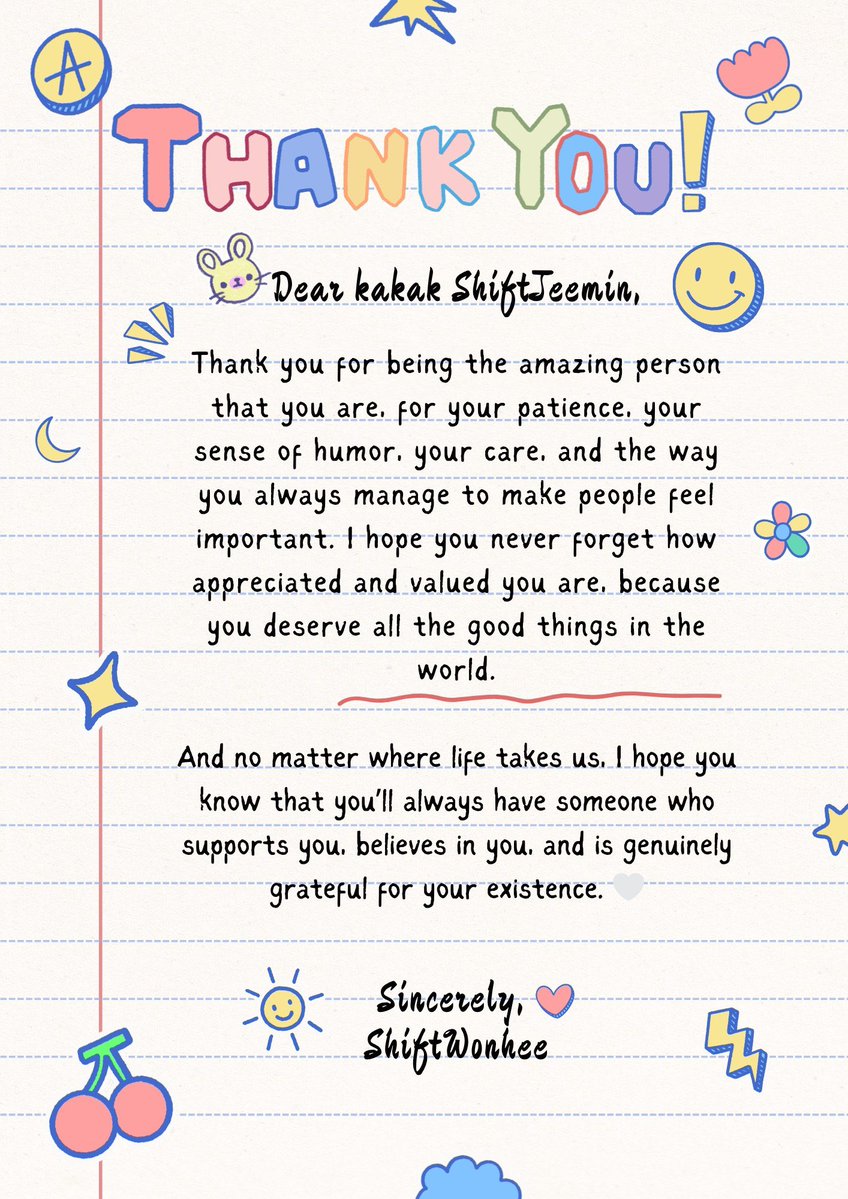 A
THANK YOU!
Dear kakak ShiftJeemin,
Thank you for being the amazing person
that you are, for your patience, your
sense of humor, your care, and the way
you always manage to make people feel
important. I hope you never forget how
appreciated and valued you are, because
you deserve all the good things in the
world.
And no matter where life takes us, I hope you
know that you'll always have someone who
supports you, believes in you, and is genuinely
grateful for your existence.
Sincerely,
ShiftWonhee